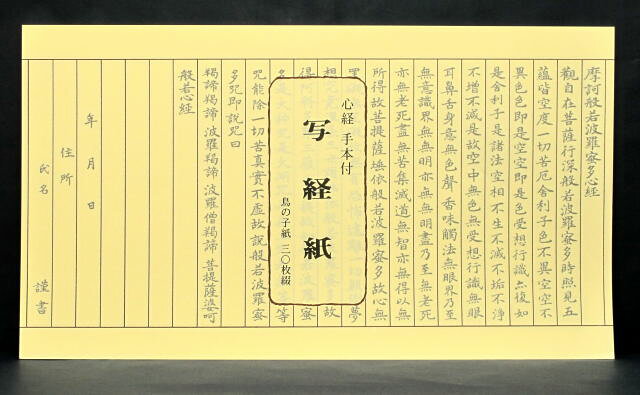 摩訶般若波羅蜜多心経
觀自在菩薩行深般若波羅蜜多時照見五
蘊皆空度一切苦厄舍利子色不異空空不
異色色即是空空即是色受想行識亦復如
是舍利子是諸法空相不生不滅不垢不浄
不增不減是故空中無色無受想行識無眼
耳鼻舌身意無色聲香味觸法無眼界乃至
無意識界無無明亦無無明盡乃至無老死
亦無老死盡無苦集滅道無智亦無得以無
所得故菩提薩埵依般若波羅蜜多故心無
心経 手本付
写経紙
鳥の子紙 三〇枚綴
罣 夢
想 故
得阿 蜜
等
咒能除一切苦真實不虛故說般若波羅蜜
多咒即説咒曰
羯諦羯諦 波羅羯諦 波羅僧羯諦 菩提薩婆呵
般若心経
年 月 日
住所
氏名 謹書